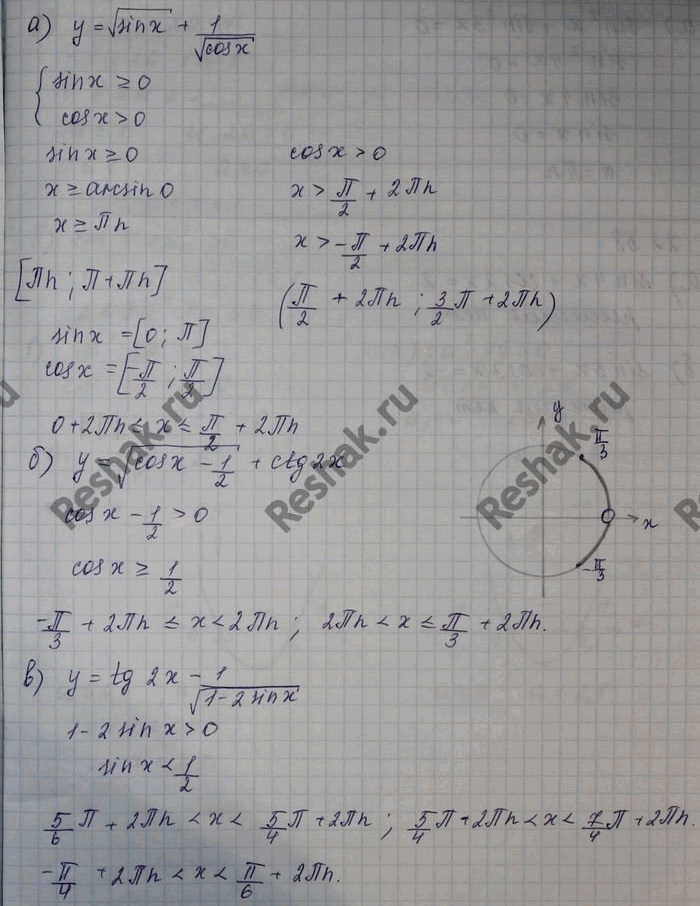 а) y = √sinx + 1/√cosx
{ sinx ≥ 0
cosx > 0
sinx ≥ 0
x ≥ arcsin 0
x ≥ πn
[πn ; π + πn]
cosx > 0
x > π/2 + 2πn
x > -π/2 + 2πn
(π/2 + 2πn ; 3/2 π + 2πn)
sinx = [0 ; π]
cosx = [-π/2 ; π/2]
0 + 2πn ≤ x ≤ π/2 + 2πn
б) y = √cosx - 1/2 + ctg 2x
cosx - 1/2 > 0
cosx ≥ 1/2
y
π/3
x
-π/3
-π/3 + 2πn ≤ x < 2πn ; 2πn < x ≤ π/3 + 2πn.
в) y = tg 2x - 1/√1-2sinx
1 - 2 sin x > 0
sinx < 1/2
5/6 π + 2πn < x < 5/4 π + 2πn ; 5/4 π + 2πn < x < 7/4 π + 2πn.
-π/4 + 2πn < x < π/6 + 2πn.
Reshak.ru
Reshak.ru
Reshak.ru